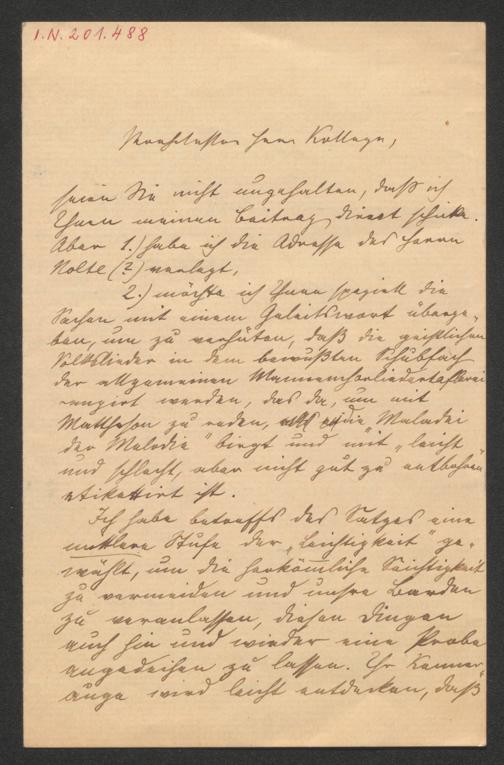 I.N. 201.488
Verehrtester Herr Kollege,
seien Sie nicht ungehalten, daß ich
Ihnen meinen Beitrag direct schicke.
Aber 1.) habe ich die Adresse des Herrn
Nolte (?) verlegt,
2.) möchte ich Ihnen speziell die
Sachen mit einem Geleitswort überge-
ben, um zu verhüten, daß die geistlichen
Volkslieder in dem bewußten Schubfach
der allgemeinen Männerchorliedertafelei
rangirt werden, das da, um mit
Mattheson zu reden, die „Maladei
der Melodie" birgt und mit „leicht
und schlecht, aber nicht gut zu entbehren"
etikettirt ist.
Ich habe betreffs des Satzes eine
mittlere Stufe der „Leichtigkeit" ge-
wählt, um die herkömmliche Seichtigkeit
zu vermeiden und unsre Barden
zu veranlassen, diesen Dingen
auch hin und wieder eine Probe
angedeihen zu lassen. Ihr Kenner-
auge wird leicht entdecken, daß